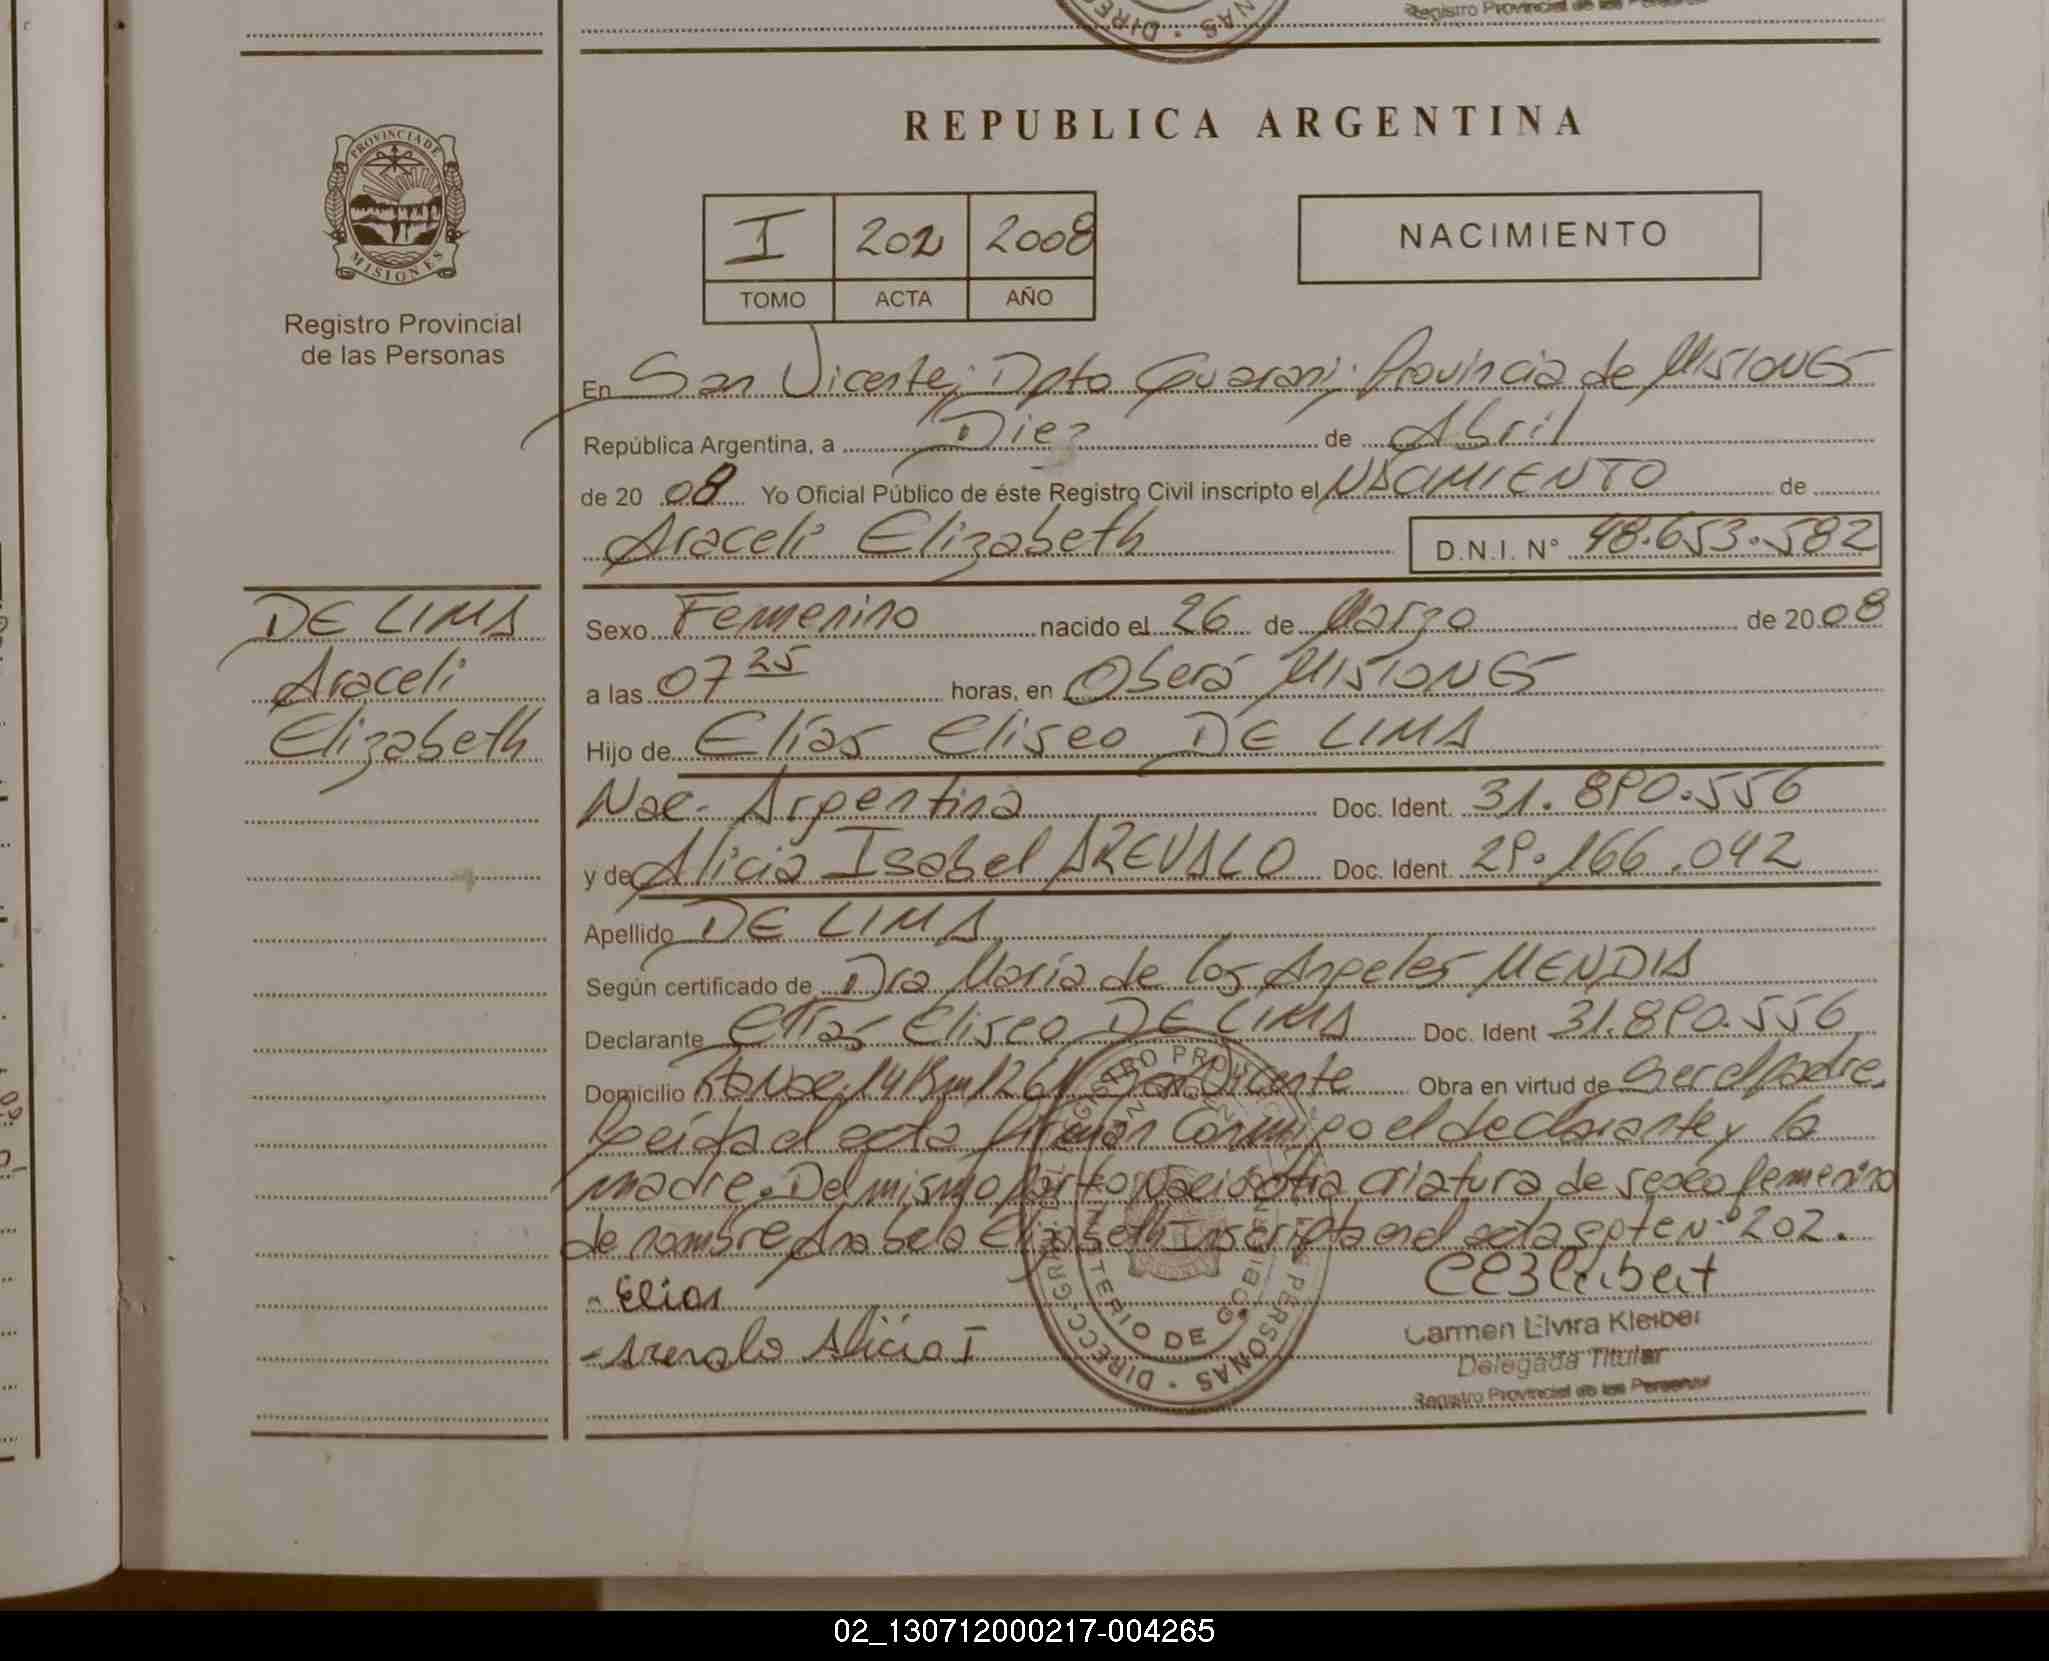 Registro Provincial de las Personas
REPUBLICA ARGENTINA
PROVINCIA DE
MISIONES
Registro Provincial
de las Personas
I 202 2008
TOMO ACTA AÑO
NACIMIENTO
En San Vicente; Dpto Guaraní; Provincia de MISIONES
República Argentina, a Diez de Abril
de 20 08 Yo Oficial Público de éste Registro Civil inscripto el NACIMIENTO de
Araceli Elizabeth D.N.I. N° 48.653.582
DE LIMA
Araceli
Elizabeth
Sexo Femenino nacido el 26 de Marzo de 20 08
a las 07 25 horas, en Oberá MISIONES
Hijo de Elías Eliseo DE LIMA
Nac. Argentina Doc. Ident. 31.890.556
y de Alicia Isabel AREVALO Doc. Ident. 29.166.042
Apellido DE LIMA
Según certificado de Dra María de los Angeles MENDIA
Declarante Elías Eliseo DE LIMA Doc. Ident 31.890.556
Domicilio Ruta Nac. 14 Km 1261 San Vicente Obra en virtud de Ser el padre.
Leída el acta firman Conmigo el declarante y la
madre. Del mismo parto nació otra criatura de sexo femenino
de nombre Anabela Elizabeth Inscripta en el acta N° 202.
- Elias
- Arevalo Alicia I
Carmen Elvira Kleiber
Delegada Titular
Registro Provincial de las Personas
02_130712000217-004265